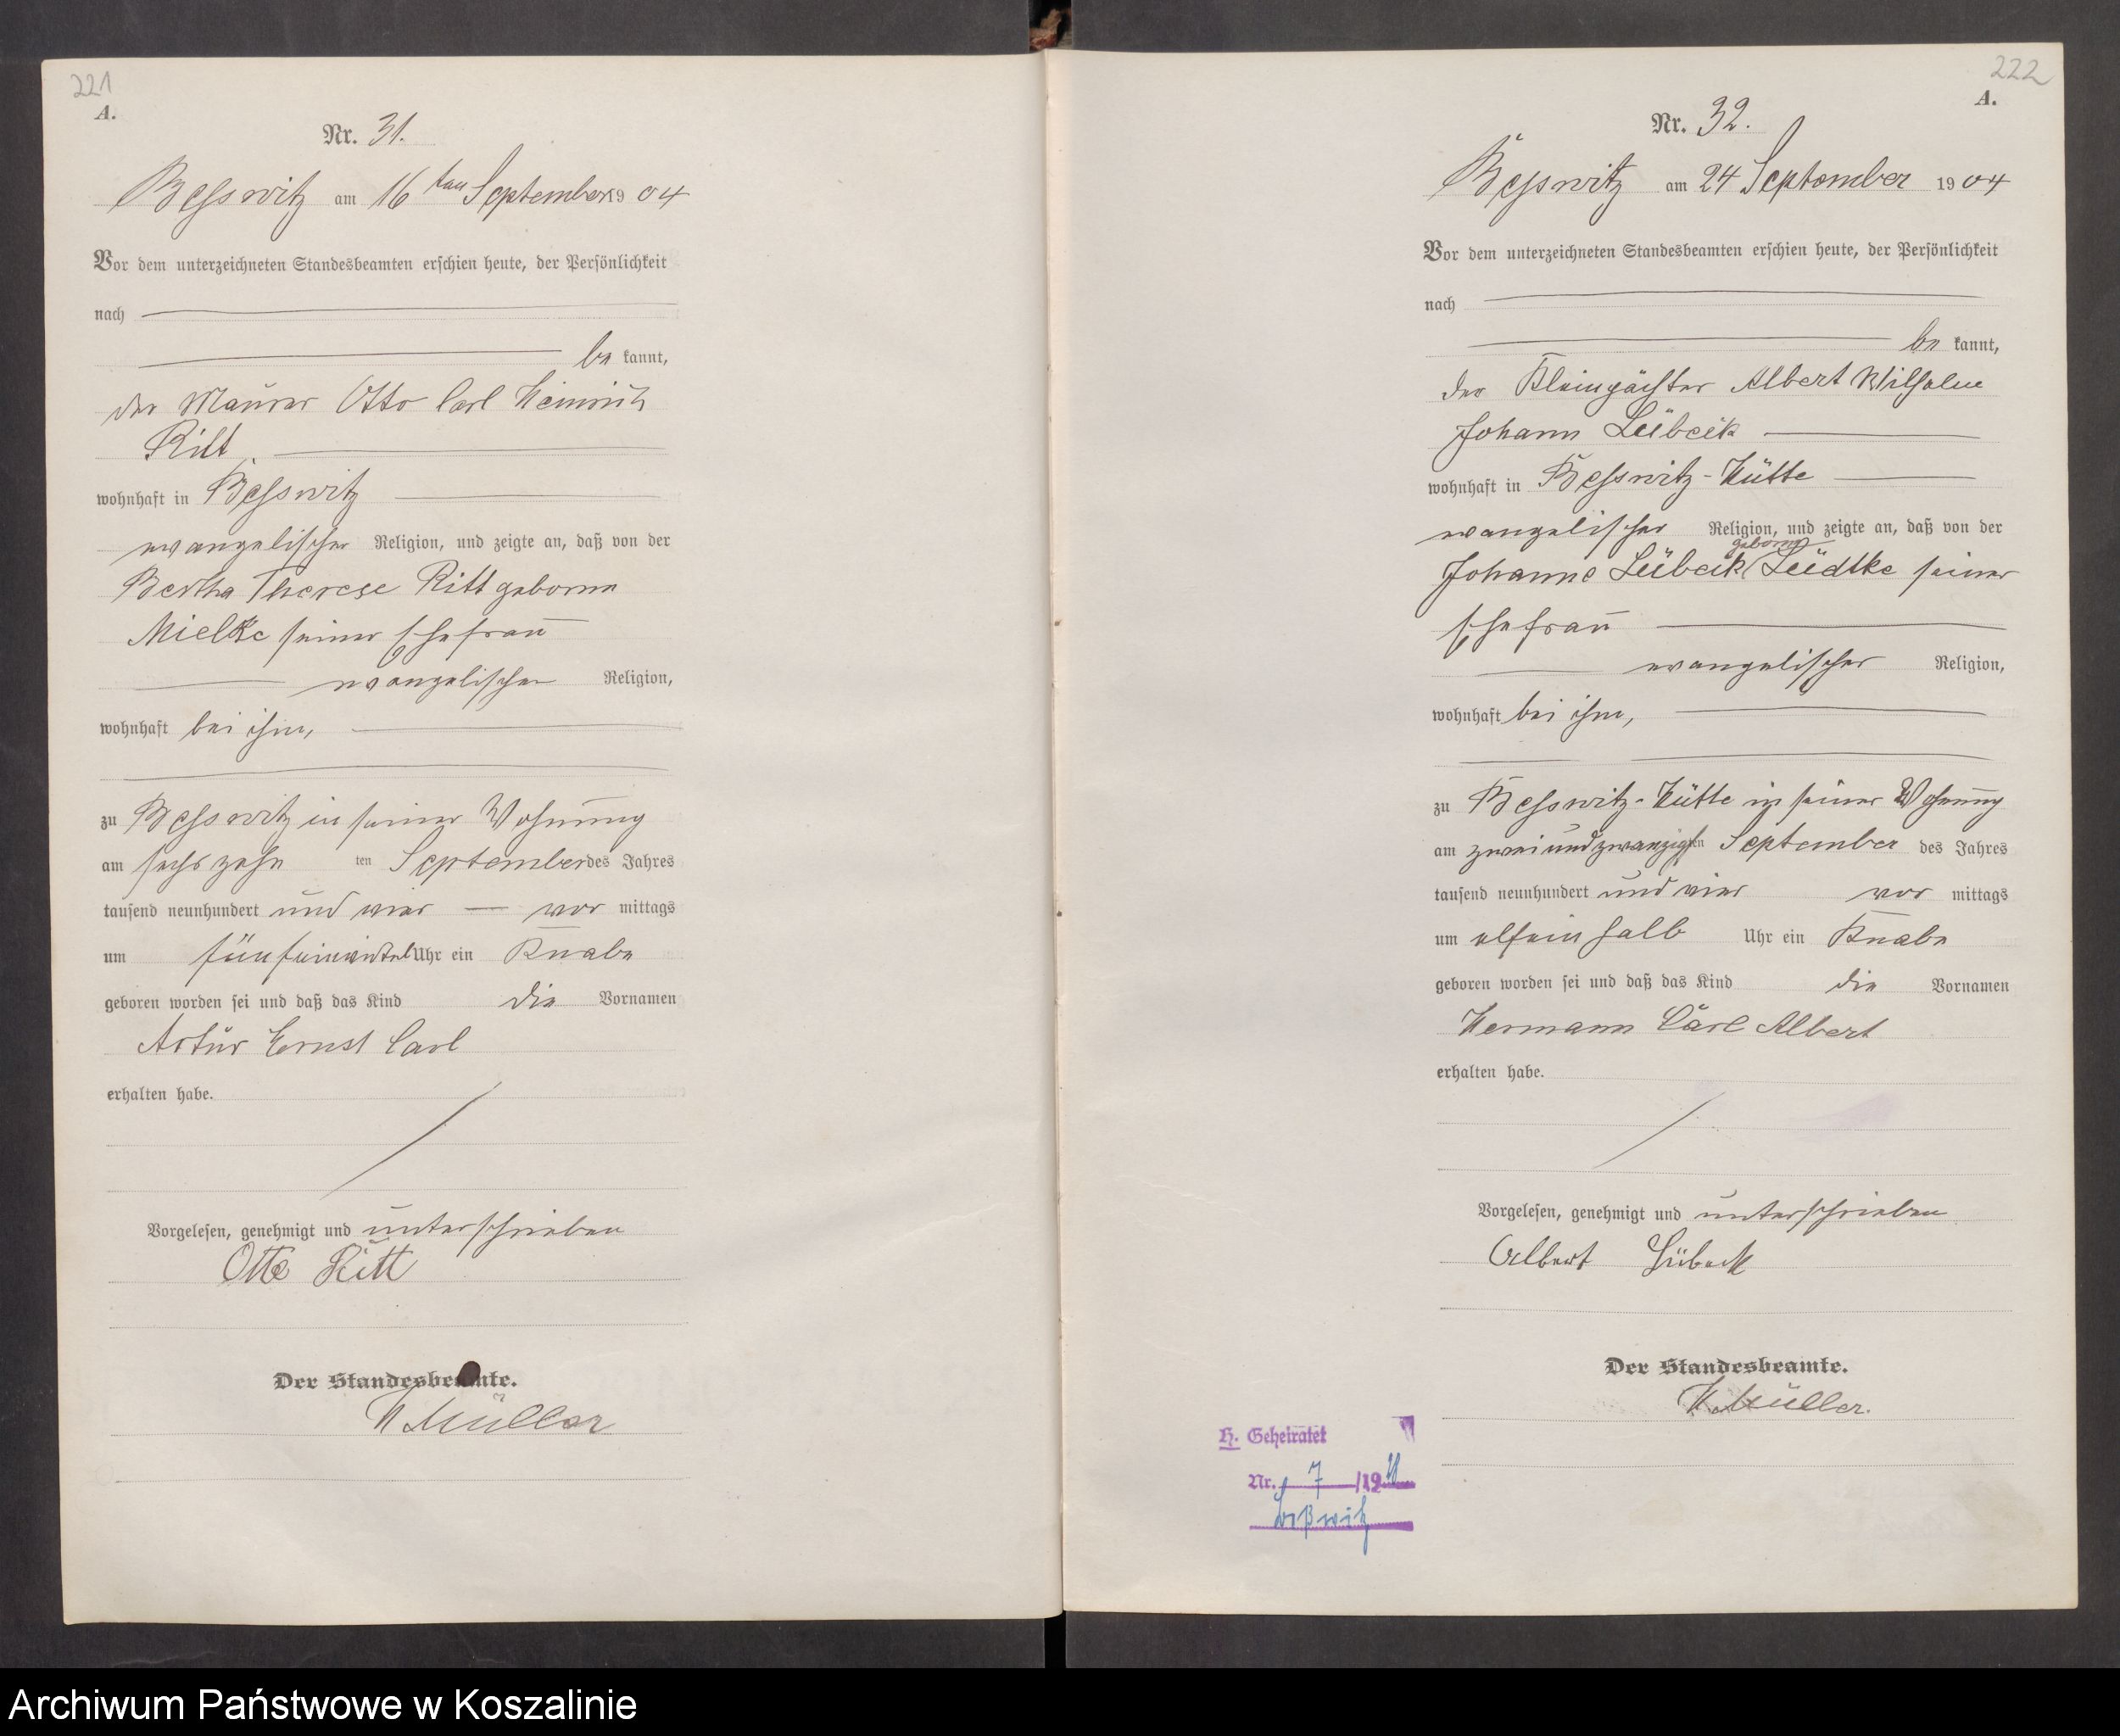 221
A.
Nr. 31.
Besswitz am 16ten September 1904
Vor dem unterzeichneten Standesbeamten erschien heute, der Persönlichkeit
nach
be kannt,
der Maurer Otto Carl Heinrich
Ritt
wohnhaft in Besswitz
evangelischer Religion, und zeigte an, daß von der
Bertha Therese Ritt geborne
Mielke seiner Ehefrau
evangelischer Religion,
wohnhaft bei ihm,
zu Besswitz in seiner Wohnung
am sechszehn ten September des Jahres
tausend neunhundert und vier vor mittags
um fünfeinviertel Uhr ein Knabe
geboren worden sei und daß das Kind die Vornamen
Artur Ernst Carl
erhalten habe.
Vorgelesen, genehmigt und unterschrieben
Otto Ritt
Der Standesbeamte.
H Müller
222
A.
Nr. 32.
Besswitz am 24 September 1904
Vor dem unterzeichneten Standesbeamten erschien heute, der Persönlichkeit
nach
be kannt,
der Kleinpächter Albert Wilhelm
Johann Lübeck
wohnhaft in Besswitz-Hütte
evangelischer Religion, und zeigte an, daß von der
geborne
Johanne Lübeck Lüdtke seiner
Ehefrau
evangelischer Religion,
wohnhaft bei ihm,
zu Besswitz-Hütte in seiner Wohnung
am zweiundzwanzigsten September des Jahres
tausend neunhundert und vier vor mittags
um elfeinhalb Uhr ein Knabe
geboren worden sei und daß das Kind die Vornamen
Hermann Carl Albert
erhalten habe.
Vorgelesen, genehmigt und unterschrieben
Albert Lübeck
Der Standesbeamte.
H. Müller.
H. Geheiratet
Nr. 7 /19
Archiwum Państwowe w Koszalinie